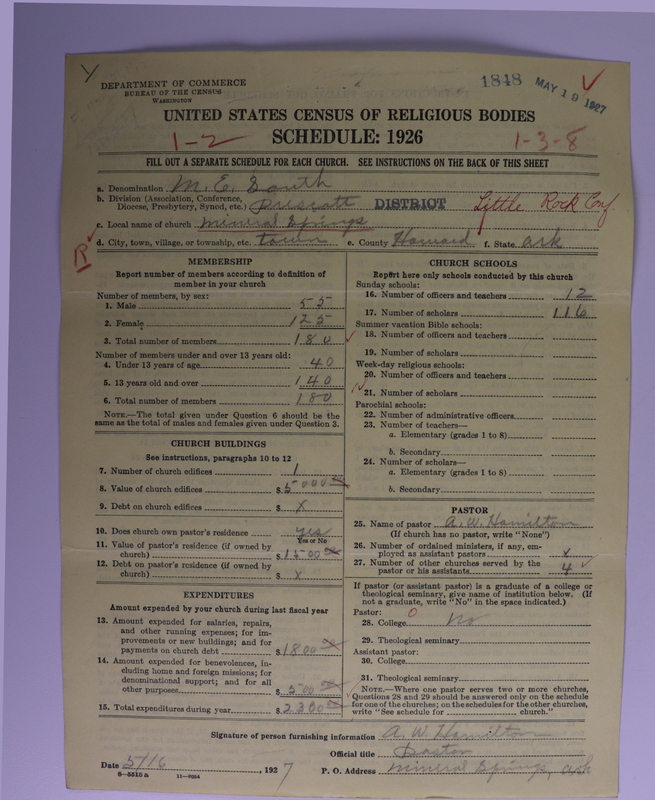 1848 MAY 19 1927
DEPARTMENT OF COMMERCE
BUREAU OF THE CENSUS
WASHINGTON
UNITED STATES CENSUS OF RELIGIOUS BODIES
1-2 SCHEDULE: 1926 1-3-8
FILL OUT A SEPARATE SCHEDULE FOR EACH CHURCH. SEE INSTRUCTIONS ON THE BACK OF THIS SHEET
a. Denomination M. E. South
b. Division (Association, Conference,
Diocese, Presbytery, Synod, etc.) Prescott DISTRICT Little Rock Conf
c. Local name of church Mineral Springs
d. City, town, village, or township, etc. town e. County Howard f. State Ark
MEMBERSHIP
Report number of members according to definition of
member in your church
Number of members, by sex:
1. Male 55
2. Female 125
3. Total number of members 180
Number of members under and over 13 years old:
4. Under 13 years of age 40
5. 13 years old and over 140
6. Total number of members 180
NOTE.—The total given under Question 6 should be the
same as the total of males and females given under Question 3.
CHURCH BUILDINGS
See instructions, paragraphs 10 to 12
7. Number of church edifices 1
8. Value of church edifices $5000
9. Debt on church edifices $ X
10. Does church own pastor's residence yes
Yes or No
11. Value of pastor's residence (if owned by
church) $1500
12. Debt on pastor's residence (if owned by
church) $ X
EXPENDITURES
Amount expended by your church during last fiscal year
13. Amount expended for salaries, repairs,
and other running expenses; for im-
provements or new buildings; and for
payments on church debt $1800
14. Amount expended for benevolences, in-
cluding home and foreign missions; for
denominational support; and for all
other purposes $500
15. Total expenditures during year $2300
CHURCH SCHOOLS
Report here only schools conducted by this church
Sunday schools:
16. Number of officers and teachers 12
17. Number of scholars 116
Summer vacation Bible schools:
18. Number of officers and teachers
19. Number of scholars
Week-day religious schools:
20. Number of officers and teachers
21. Number of scholars
Parochial schools:
22. Number of administrative officers
23. Number of teachers—
a. Elementary (grades 1 to 8)
b. Secondary
24. Number of scholars—
a. Elementary (grades 1 to 8)
b. Secondary
PASTOR
25. Name of pastor A. W. Hamilton
(If church has no pastor, write "None")
26. Number of ordained ministers, if any, em-
ployed as assistant pastors x
27. Number of other churches served by the
pastor or his assistants 4
If pastor (or assistant pastor) is a graduate of a college or
theological seminary, give name of institution below. (If
not a graduate, write "No" in the space indicated.)
Pastor:
28. College 0 No
29. Theological seminary
Assistant pastor:
30. College
31. Theological seminary
NOTE.—Where one pastor serves two or more churches,
Questions 28 and 29 should be answered only on the schedule
for one of the churches; on the schedules for the other churches,
write "See schedule for church."
Signature of person furnishing information A. W. Hamilton
Official title Pastor
Date 5/16, 1927 P. O. Address Mineral Springs, Ark
8—5515a 11—9024